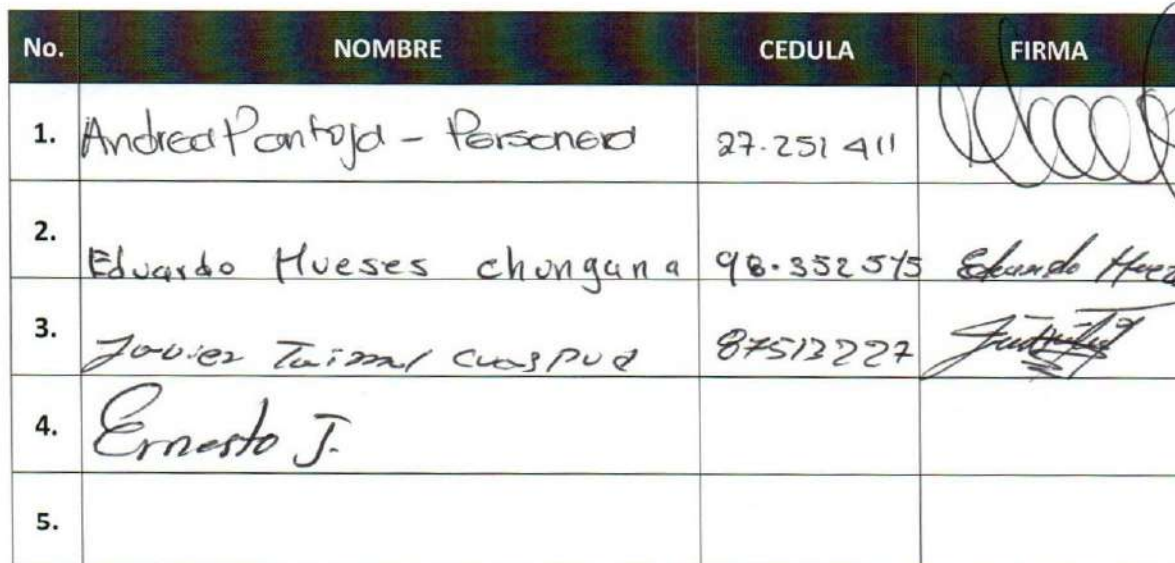 No. NOMBRE CEDULA FIRMA
1. Andrea Pantoja - Personera 27.251 411
2. Eduardo Hueses chungana 98.352515 Eduardo Hues
3. Javier Taimal cuaspud 87513227
4. Ernesto J.
5.